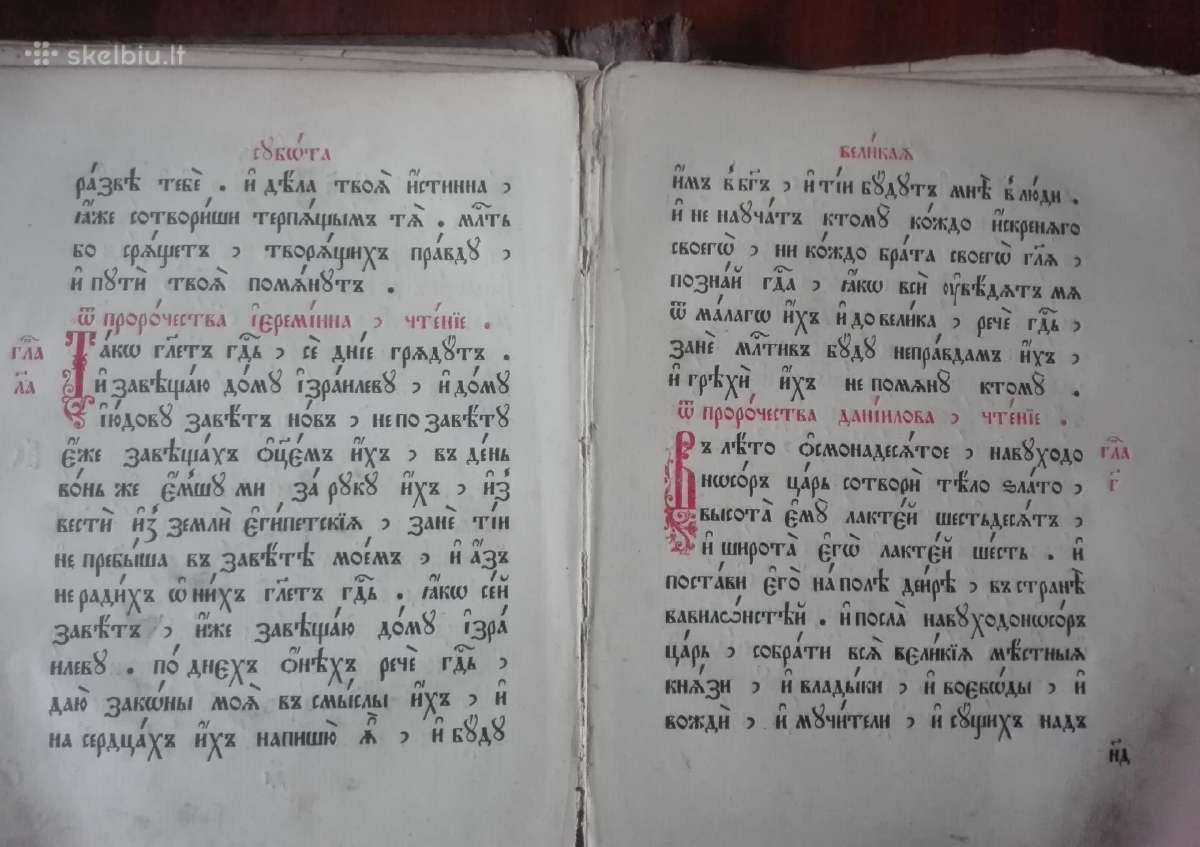 skelbiu.lt
сꙋбѡ́та
ра́звѣ тебѐ . и҆ дѣ́ла твоѧ̀ и҆́стинна ,
ꙗ҆́же сотвори́ши терпѧ́щымъ тѧ̀ . мл҃ть
бо срѧ́щетъ , творѧ́щихъ пра́вдꙋ ,
и҆ пꙋтѝ твоѧ̀ помѧнꙋ́тъ .
ѿ проро́чества і҆еремі́инна , чте́нїе .
гл҃а Та́кѡ гл҃етъ гд҇ь , сѐ дні́е грѧдꙋ́тъ .
л҃а и҆ завѣща́ю до́мꙋ і҆зра́илевꙋ , и҆ до́мꙋ
і҆ю́довꙋ завѣ́тъ но́въ , не по завѣ́тꙋ
є҆́же завѣща́хъ ѻ҆ц҃е́мъ и҆́хъ , въ де́нь
во́нь же є҆́мшꙋ ми за рꙋкꙋ и҆́хъ , и҆з̾
вестѝ и҆з̾ землѝ є҆гі́петскїѧ , занѐ ті́и
не пребы́ша въ завѣ́тѣ мое́мъ , и҆ а҆́зъ
не ради́хъ ѡ҆ ни́хъ гл҃етъ гд҇ь . ꙗ҆́кѡ се́й
завѣ́тъ , и҆́же завѣща́ю до́мꙋ і҆зра́
илевꙋ . по́ днехъ ѻ҆нѣ́хъ речѐ гд҇ь ,
даю̀ зако́ны моѧ̀ въ смы́слы и҆́хъ , и҆
на сердца́хъ и҆́хъ напишю̀ ѧ҆̀ , и҆ бꙋ́дꙋ
вели́каѧ
и҆́мъ в̾ бг҃ъ , и҆ ті́и бꙋ́дꙋтъ мнѣ̀ в̾ лю́ди .
и҆ не наꙋча́тъ ктомꙋ̀ ко́ждо и҆́скренѧго
своегѡ̀ , ни ко́ждо бра́та своегѡ̀ гл҃ѧ ,
позна́й гд҇а , ꙗ҆́кѡ всѝ ᲂу҆вѣ́дѧтъ мѧ
ѿ ма́лагѡ и҆́хъ и҆ до вели́ка , речѐ гд҇ь ,
занѐ мл҇тивъ бꙋ́дꙋ непра́вдамъ и҆́хъ ,
и҆ грѣхѝ и҆́хъ не помѧнꙋ̀ ктомꙋ̀ .
ѿ проро́чества данїи́лова , чте́нїе .
Въ лѣ́то ѻ҆смонадесѧ́тое , навꙋходо гл҃а
но́соръ ца́рь сотворѝ тѣ́ло ѕла́то , г҃
высота̀ є҆мꙋ̀ лакте́й шестьдесѧ́тъ ,
и҆ широта̀ є҆гѡ̀ лакте́й ше́сть . и҆
поста́ви є҆го̀ на́ полѣ деи́рѣ , въ странѣ̀
вавилѡ́нстѣй . и҆ посла̀ навꙋходоно́соръ
ца́рь , собра́ти всѧ̀ вели́кїѧ мѣ́стныѧ
кнѧ́зи , и҆ влады́ки , и҆ воево́ды , и҆
вождѝ , и҆ мꙋчи́тели , и҆ сꙋ́щихъ надъ
н҃д